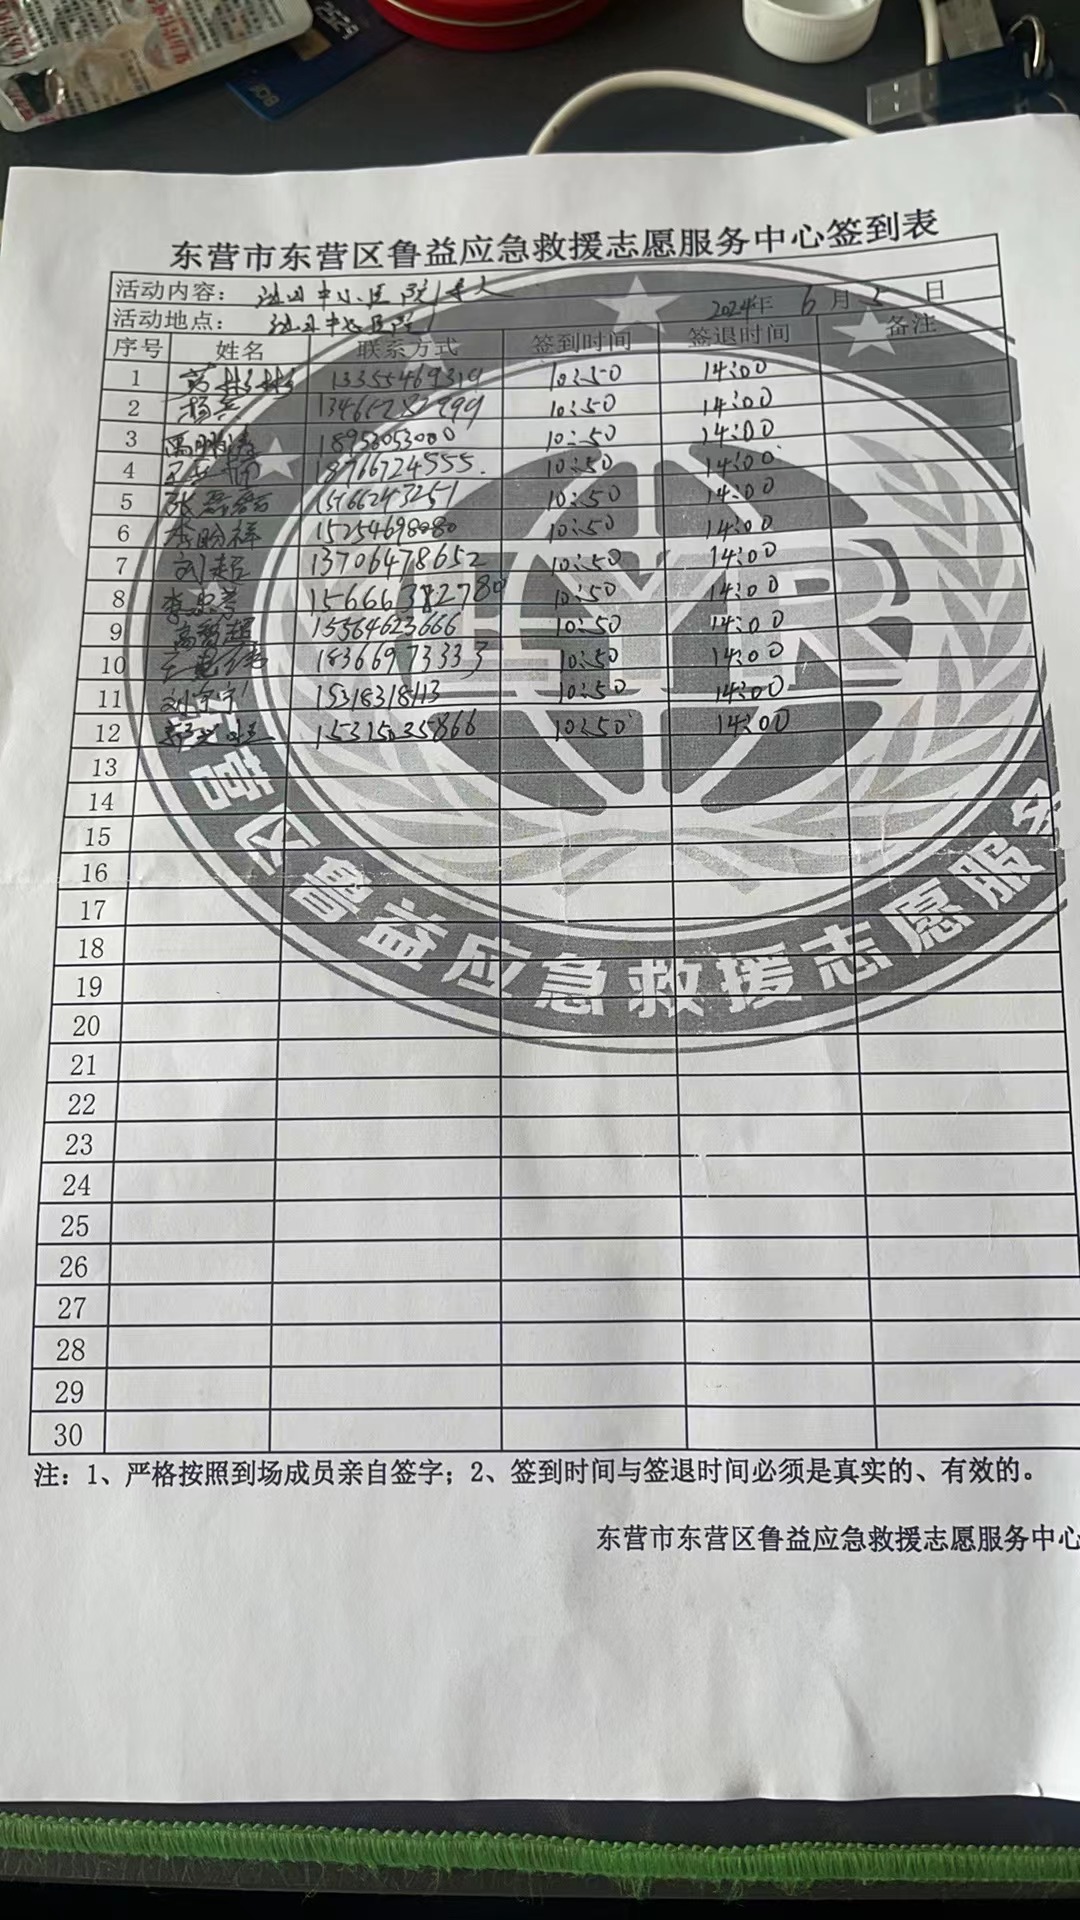 东营市东营区鲁益应急救援志愿服务中心签到表
活动内容： 中心医院 人
活动地点： 中心医院
2024年 6 月 5 日
序号 姓名 联系方式 签到时间 签退时间 备注
1 13355469319 10:50 14:00
2 杨兵 13465282999 10:50 14:00
3 18953053000 10:50 14:00
4 18766724555. 10:50 14:00
5 张磊磊 15166243251 10:50 14:00
6 李盼祥 15254698080 10:50 14:00
7 刘超 13706478652 10:50 14:00
8 10:50 14:00
9 高智超 15564623666 10:50 14:00
10 18366973333 10:50 14:00
11 刘宁宁 15318318113 10:50 14:00
12 15315635866 10:50 14:00
13
14
15
16
17
18
19
20
21
22
23
24
25
26
27
28
29
30
LYR
东营区鲁益应急救援志愿服务
注：1、严格按照到场成员亲自签字；2、签到时间与签退时间必须是真实的、有效的。
东营市东营区鲁益应急救援志愿服务中心